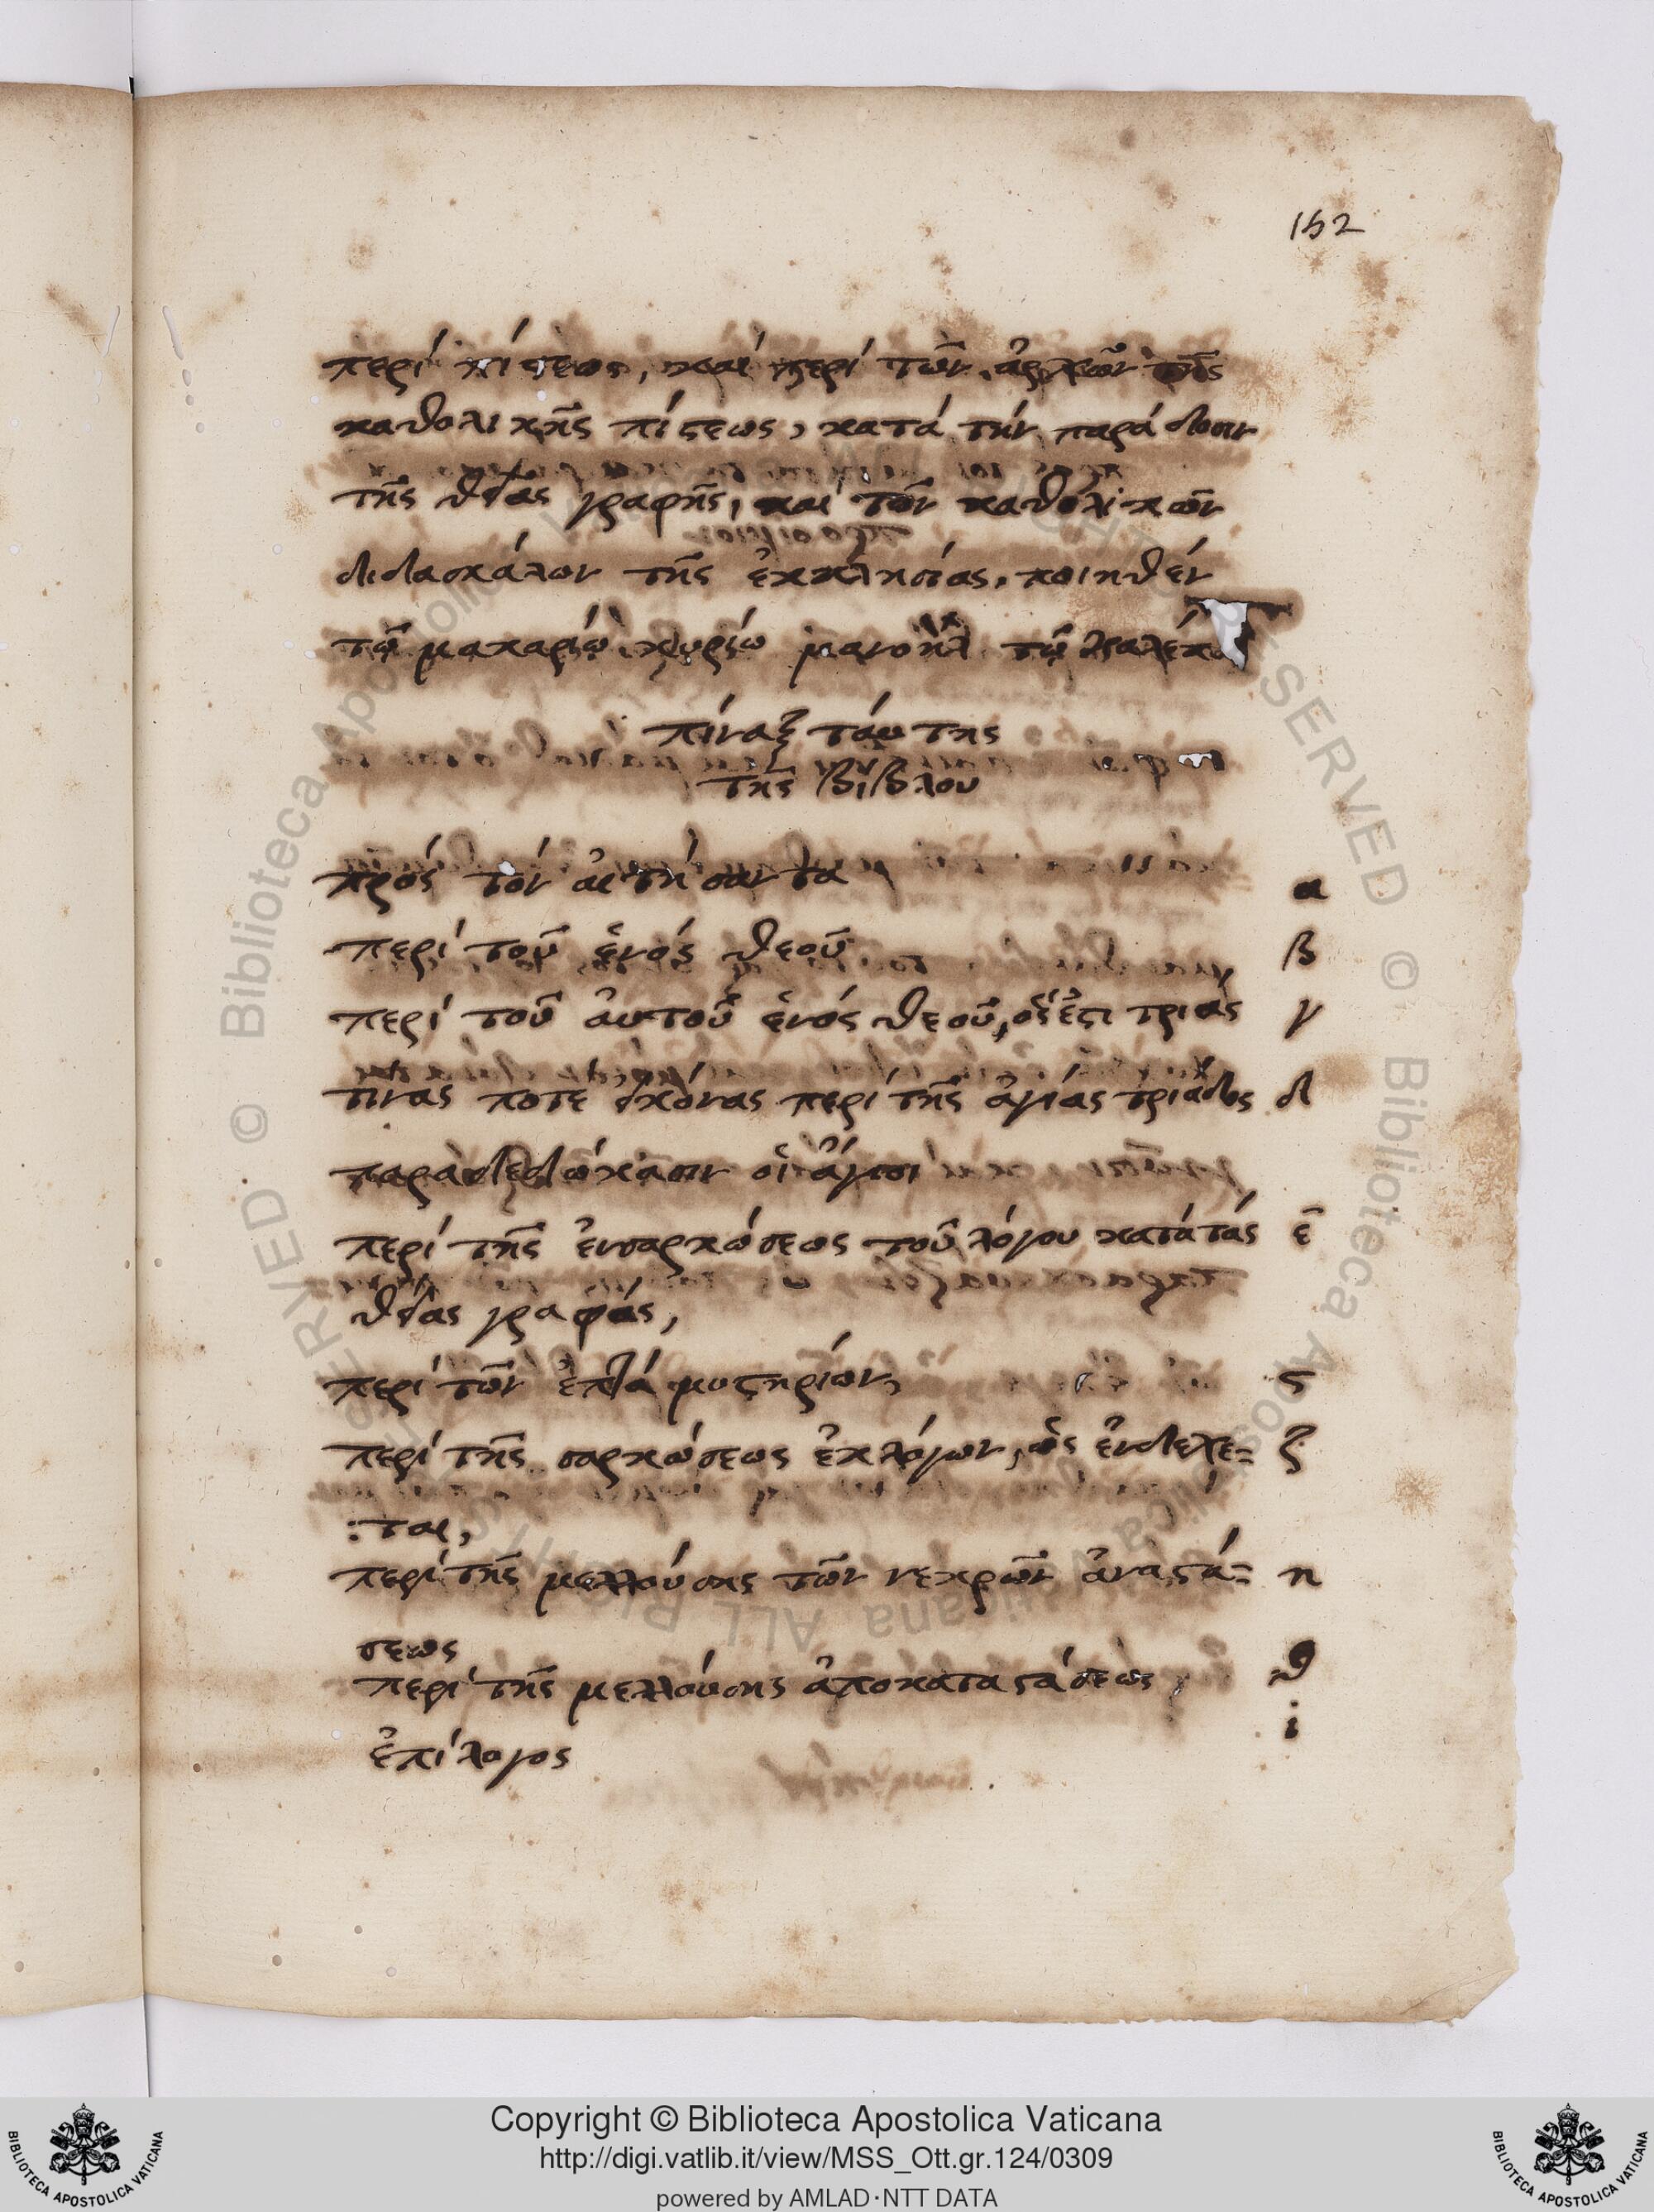 152
περί πίστεως, καί περί τῶν ἀρχῶν τῆς
καθολικῆς πίστεως, κατά τήν παράδοσιν
τῆς θείας γραφῆς, καί τῶν καθολικῶν
διδασκάλων τῆς ἐκκλησίας, ποιηθέν
τῷ μακαρίῳ κυρίῳ μανοήλ τῷ
πίναξ ταύτης
τῆς βίβλου
πρός τόν αἰτήσαντα α
περί τοῦ ἑνός θεοῦ β
περί τοῦ ἀυτοῦ ἑνός θεοῦ, ὅς ἐστι τριάς γ
τίνας ποτέ εἰκόνας περί τῆς ἁγίας τριάδος δ
παραδεδώκασιν οἱ ἅγιοι
περί τῆς ἐνσαρκώσεως τοῦ λόγου κατά τάς ε
θείας γραφάς,
περί τῶν ἑπτά μυστηρίων, ς
περί τῆς σαρκώσεως ἐκ λόγων, ὡς ἐνδέχε= ζ
:ται,
περί τῆς μελλούσης τῶν νεκρῶν ἀναστά= η
σεως
περί τῆς μελλούσης ἀποκαταστάσεως θ
ἐπίλογος ι
Copyright © Biblioteca Apostolica Vaticana
http://digi.vatlib.it/view/MSS_Ott.gr.124/0309
powered by AMLAD·NTT DATA
BIBLIOTECA APOSTOLICA VATICANA
BIBLIOTECA APOSTOLICA VATICANA